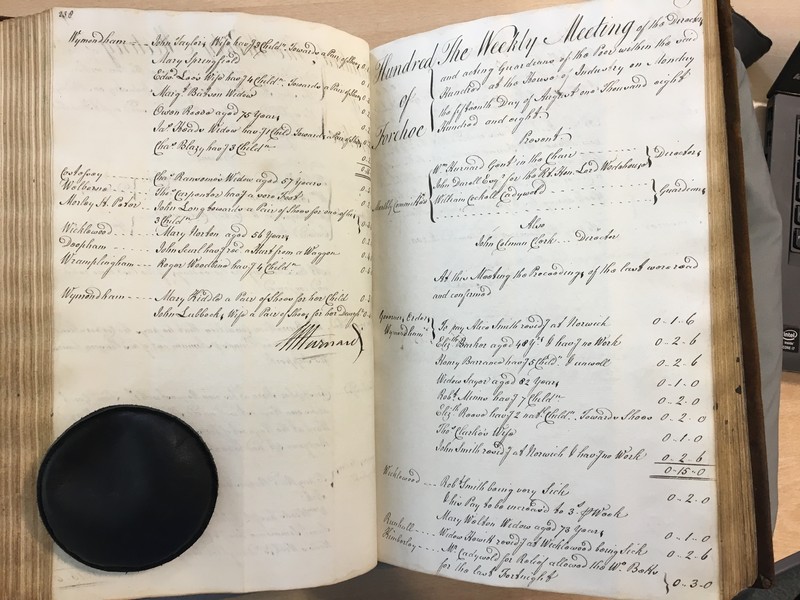 238
Wymondham John Taylors Wife havg 3 Childn. Towards a Pair of Shoes
Mary Springfield
Edwd. Loos Wife havg 4 Childn. Towards a Pair of Shoes
Margt. Batson Widow
Owen Roose aged 75 Years
Jas. Howes Widow havg 1 Child Towards a Pair of Shoes
Chas. Blazy havg 3 Childn.
Costesey Chas. Ransome's Widow aged 57 Years
Welborne Thos. Carpenter havg a sore Foot
Morley St. Peter John Long towards a Pair of Shoes for one of his
3 Childn.
Wicklewood Mary Norton aged 56 Years
Deopham John havg recd. a Hurt from a Waggon
Wramplingham Roger Woodbine havg 4 Childn.
Wymondham Mary Kiddle a Pair of Shoes for her Child
John Lubbocks Wife a Pair of Shoes for her Daughr.
Harnard
Hundred of Forehoe
The Weekly Meeting of the Directors
and acting Guardians of the Poor within the said
Hundred at the House of Industry on Monday
the fifteenth Day of August one Thousand eight
Hundred and eight
Present
Wm. Harnard Gent. in the Chair
John Darell Esqr. for the Rt. Hon. Lord Wodehouse
Directors
Monthly Committee
William Cockell Cadywold
Guardians
Also
John Colman Clerk Director
At this Meeting the Proceedings of the last were read
and confirmed
Governor Orders
Wymondham
To pay Alice Smith residg at Norwich 0-1-6
Elizth. Barker aged 48 Yrs. & havg no Work 0-2-6
Henry Barrance havg 5 Childn. & unwell 0-2-6
Widow Sayer aged 82 Years 0-1-0
Robt. Minns havg 7 Childn. 0-2-0
Elizth. Roose havg 2 natl. Childn. Towards Shoes 0-2-0
Thos. Clarke's Wife 0-1-0
John Smith residg at Norwich & havg no Work 0-2-6
0-15-0
Wicklewood Robt. Smith being very Sick 0-2-0
& his Pay to be increased to 3s. pr Week
Mary Walton Widow aged 73 Years 0-1-0
Runhall Widow Howitt residg at Wicklewood being Sick 0-2-6
Kimberley Mr. Cadywold for Relief allowed the Wo. Baks
for the last Fortnight 0-3-0